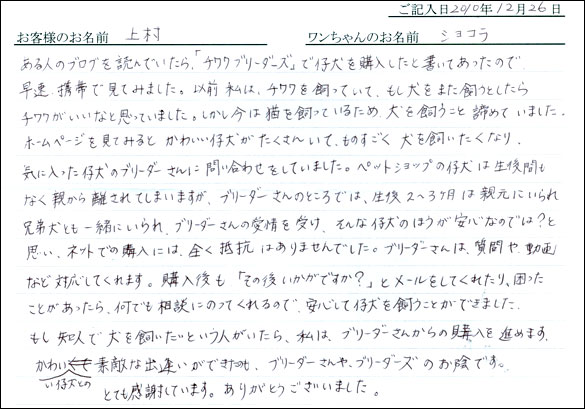 ご記入日2010年12月26日
お客様のお名前 上村 ワンちゃんのお名前 ショコラ
ある人のブログを読んでいたら、「チワワブリーダーズ」で仔犬を購入したと書いてあったので、
早速、携帯で見てみました。以前私は、チワワを飼っていて、もし犬をまた飼うとしたら
チワワがいいなと思っていました。しかし今は猫を飼っているため、犬を飼うこと諦めていました。
ホームページを見てみると かわいい仔犬が たくさんいて、ものすごく 犬を飼いたくなり、
気に入った仔犬のブリーダーさんに問い合わせをしていました。ペットショップの仔犬は生後間も
なく親から離されてしまいますが、ブリーダーさんのところでは、生後2〜3ヶ月は親元にいられ
兄弟犬とも一緒にいられ、ブリーダーさんの愛情を受け、そんな仔犬のほうが安心なのでは?と
思い、ネットでの購入には、全く抵抗はありませんでした。ブリーダーさんは、質問や、動画
など対応してくれます。購入後も「その後いかがですか?」とメールをしてくれたり、困った
ことがあったら、何でも相談にのってくれるので、安心して仔犬を飼うことができました。
もし知人で犬を飼いたいという人がいたら、私は、ブリーダーさんからの購入を進めます。
かわいい仔犬との素敵な出逢いができたのも、ブリーダーさんや、ブリーダーズのお陰です。
とても感謝しています。ありがとうございました。